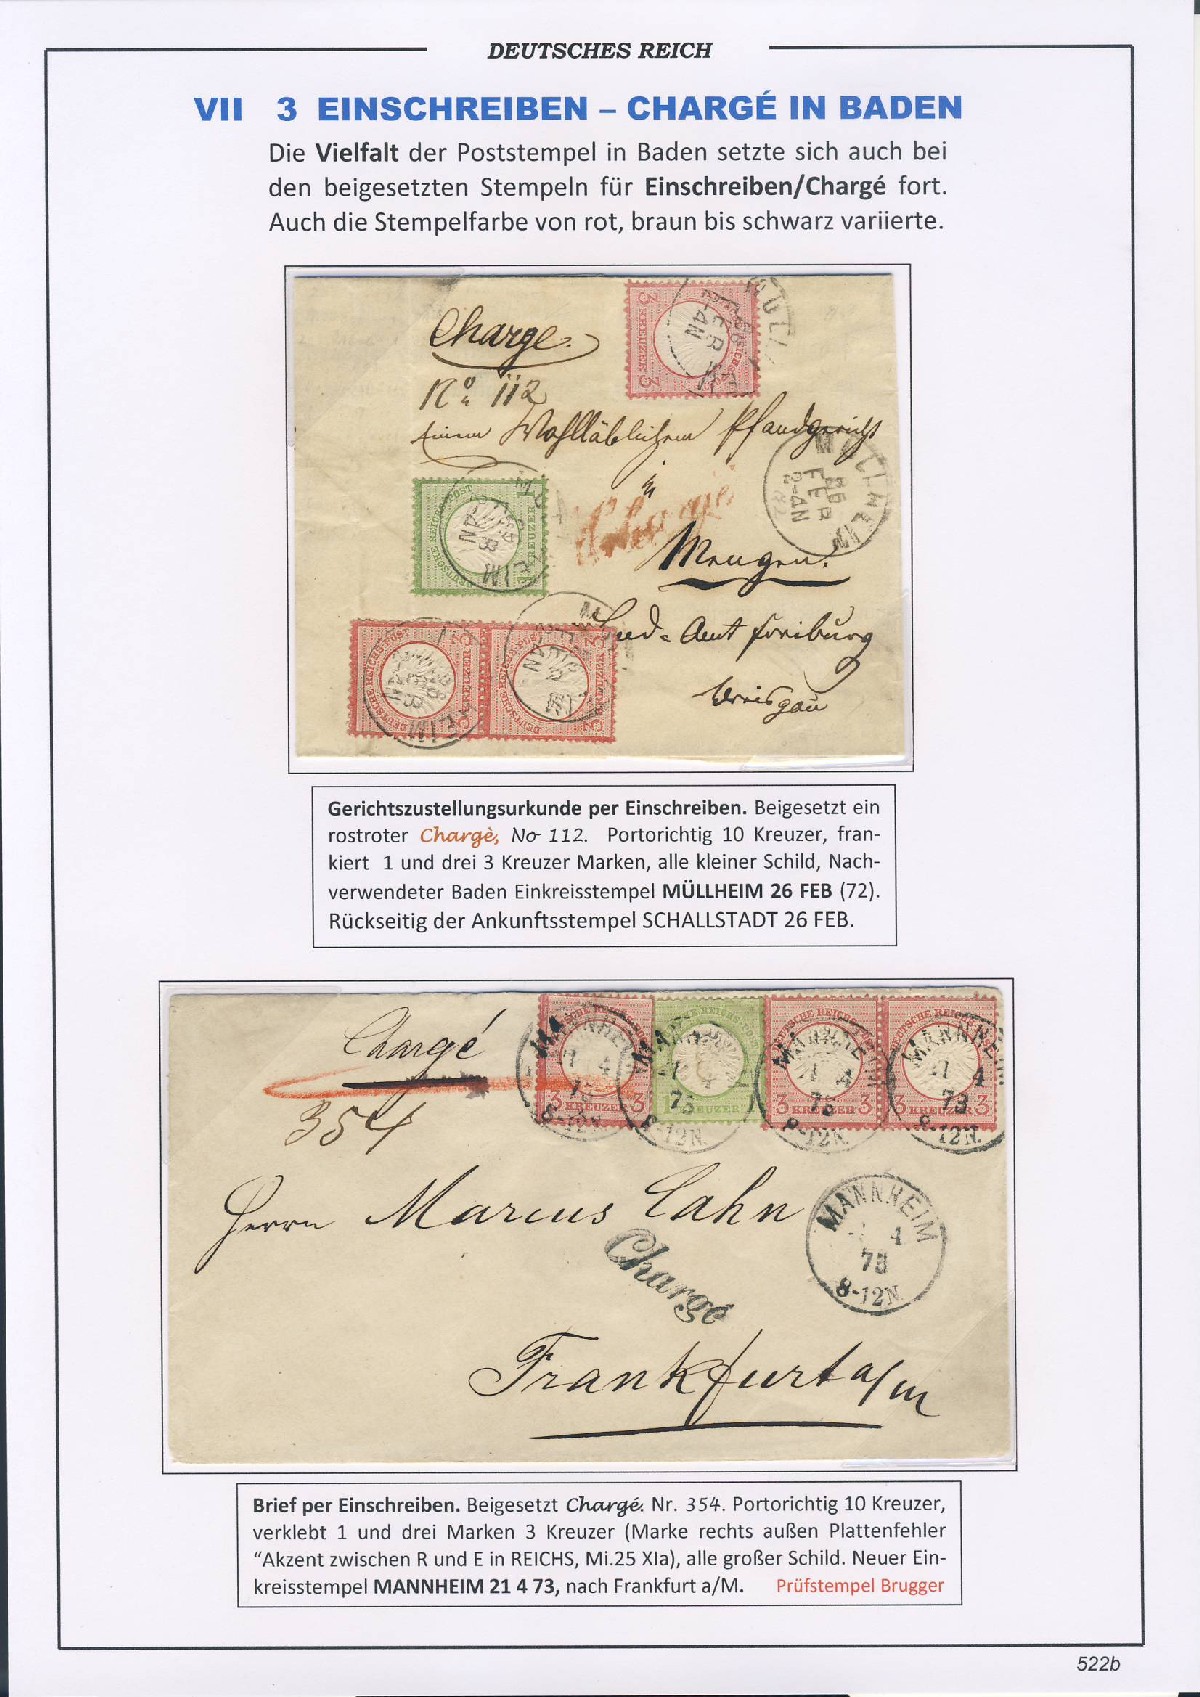 DEUTSCHES REICH
VII 3 EINSCHREIBEN – CHARGÉ IN BADEN
Die Vielfalt der Poststempel in Baden setzte sich auch bei
den beigesetzten Stempeln für Einschreiben/Chargé fort.
Auch die Stempelfarbe von rot, braun bis schwarz variierte.
Charge.
No 112
Einem Wohllöblichen Pfandgericht
in
Chargé
Mengen.
Amt Freiburg
Breisgau
MÜLLHEIM
26
FEB
2-4N
3 KREUZER 3
Gerichtszustellungsurkunde per Einschreiben. Beigesetzt ein
rostroter Chargè, No 112. Portorichtig 10 Kreuzer, fran-
kiert 1 und drei 3 Kreuzer Marken, alle kleiner Schild, Nach-
verwendeter Baden Einkreisstempel MÜLLHEIM 26 FEB (72).
Rückseitig der Ankunftsstempel SCHALLSTADT 26 FEB.
Chargé
354
3 KREUZER 3
KREUZER
3 KREUZER 3
3 KREUZER 3
MANNHEIM
4
73
8-12N.
Herrn Marcus Cahn
Chargé
MANNHEIM
4
73
8-12N.
Frankfurt a/m
Brief per Einschreiben. Beigesetzt Chargé. Nr. 354. Portorichtig 10 Kreuzer,
verklebt 1 und drei Marken 3 Kreuzer (Marke rechts außen Plattenfehler
“Akzent zwischen R und E in REICHS, Mi.25 XIa), alle großer Schild. Neuer Ein-
kreisstempel MANNHEIM 21 4 73, nach Frankfurt a/M. Prüfstempel Brugger
522b